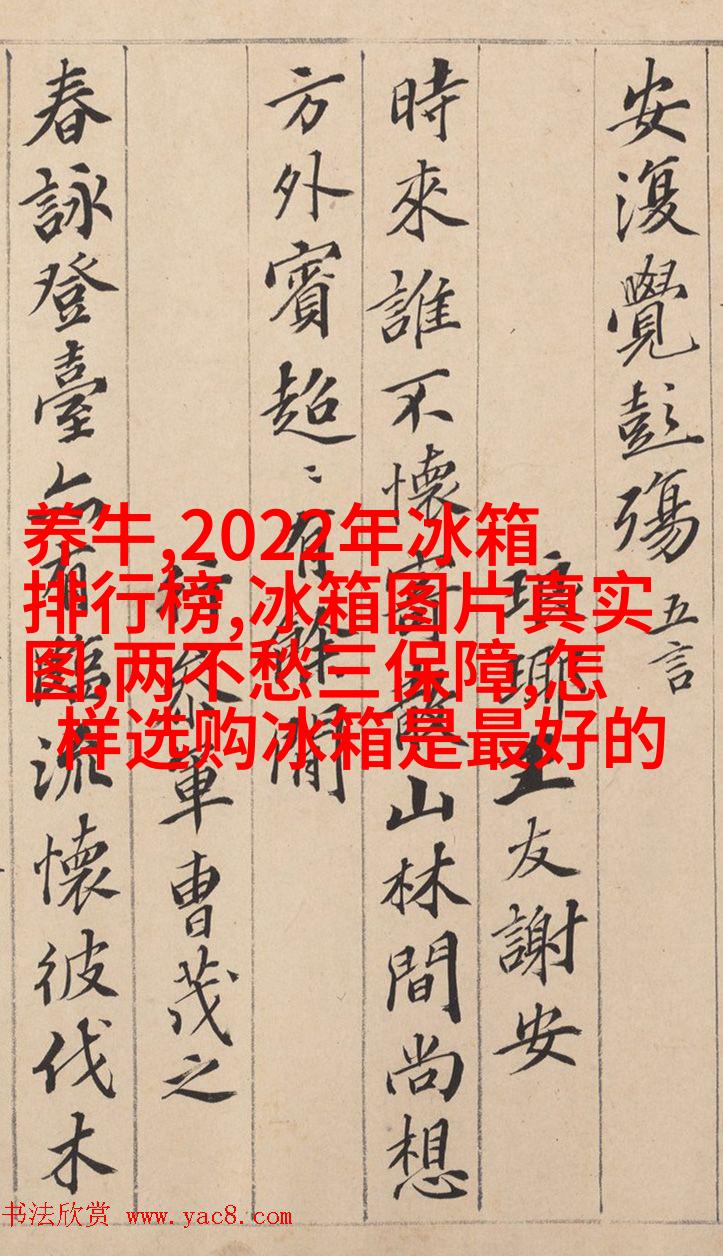 安復覺彭殤 五言
瑯琊王友謝安
時來誰不懷寄散山林間尚想
方外賓超〻有餘閒
參軍曹茂之
春詠登臺亦有臨流懷彼伐木
养牛,2022年冰箱
排行榜,冰箱图片真实
图,两不愁三保障,怎
样选购冰箱是最好的
书法欣赏 www.yac8.com